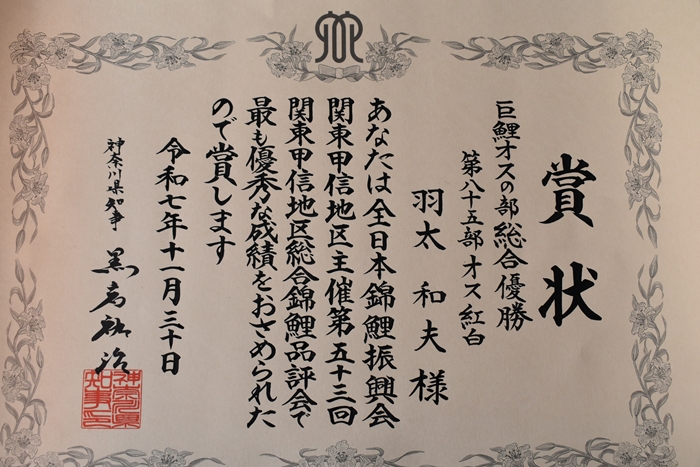 賞状
巨鯉オスの部総合優勝
第八十五部オス紅白
羽太 和夫 様
あなたは全日本錦鯉振興会
関東甲信地区主催第五十三回
関東甲信地区総合錦鯉品評会で
最も優秀な成績をおさめられた
ので賞します
令和七年十一月三十日
神奈川県知事 黒岩祐治
神奈川県
知事之印